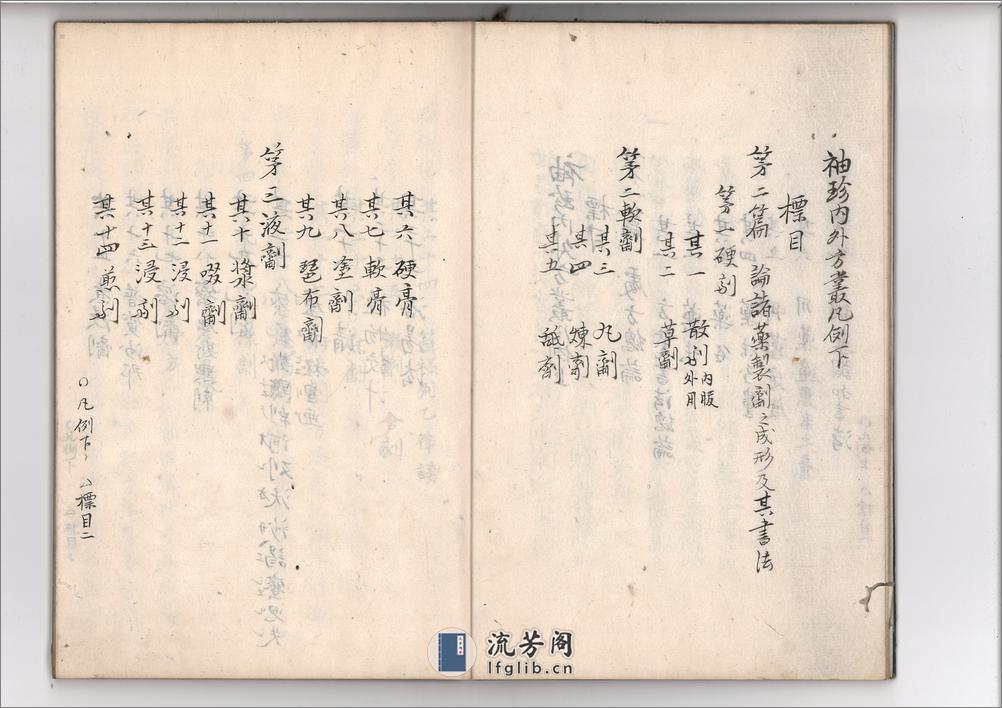 袖珍内外方叢凡例下
標目
第二篇 論諸薬製劑之成形及其書法
第一硬剤
其一 散剤 内服及外用
其二 草劑
第二軟劑
其三 丸劑
其四 煉劑
其五 舐劑
其六 硬膏
其七 軟膏
其八 塗劑
其九 琶布劑
第三液劑
其十 漿劑
其十一 啜劑
其十二 浸剤
其十三 浸剤
其十四 煎剤
○凡例下 △標目二
流芳阁
lfglib.cn